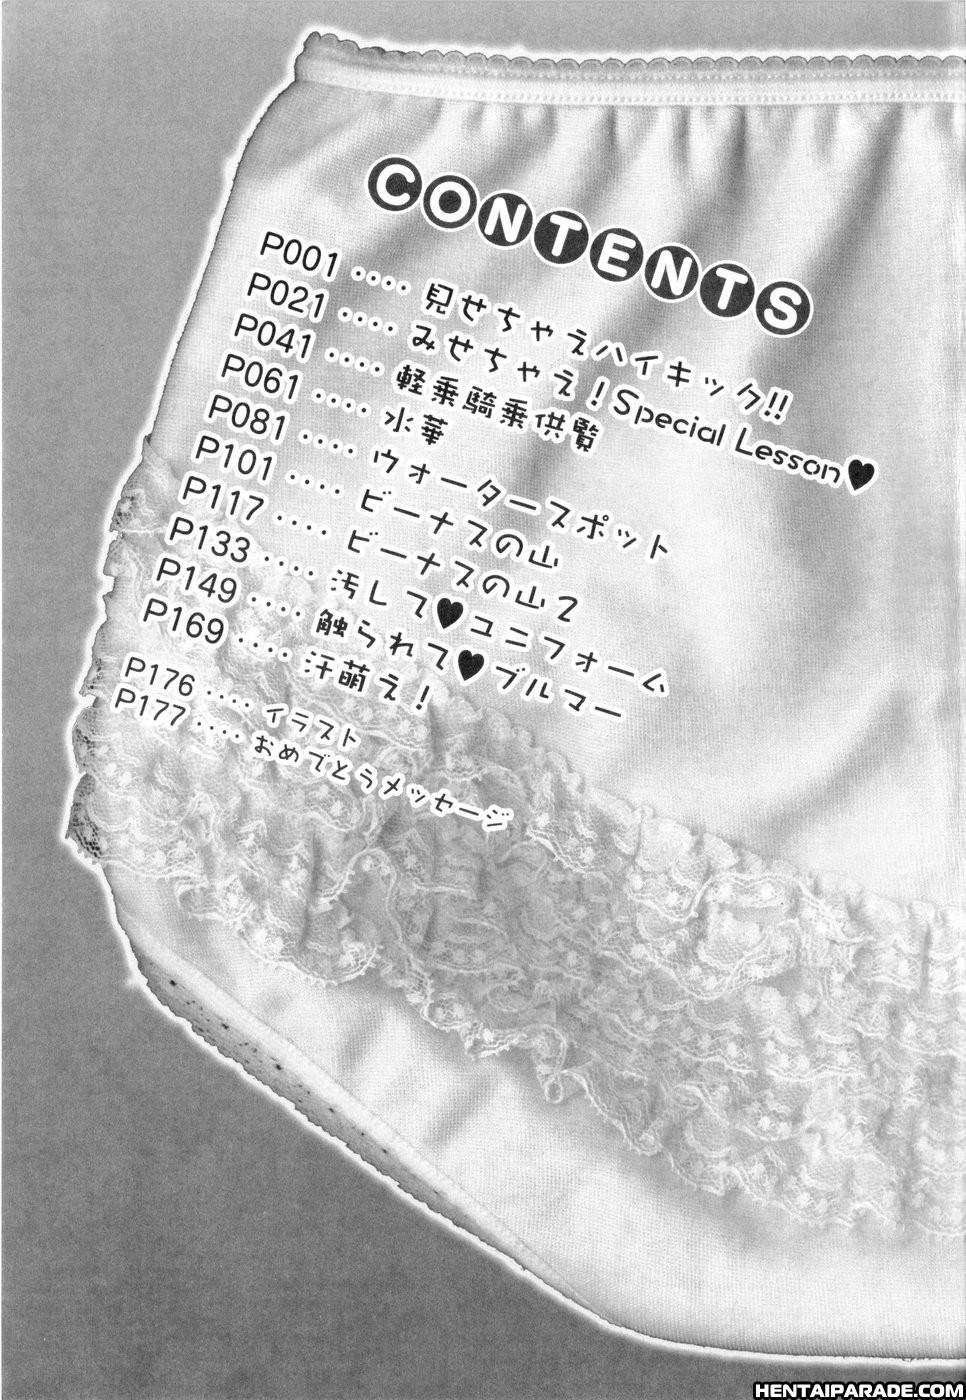 CONTENTS
P001 ････ 見せちゃえハイキック!!
P021 ････ みせちゃえ！Special Lesson♥
P041 ････ 軽乗騎乗供覧
P061 ････ 水華
P081 ････ ウォータースポット
P101 ････ ビーナスの山
P117 ････ ビーナスの山2
P133 ････ 汚して♥ユニフォーム
P149 ････ 触られて♥ブルマー
P169 ････ 汗萌え！
P176 ････ イラスト
P177 ････ おめでとうメッセージ
HENTAIPARADE.COM